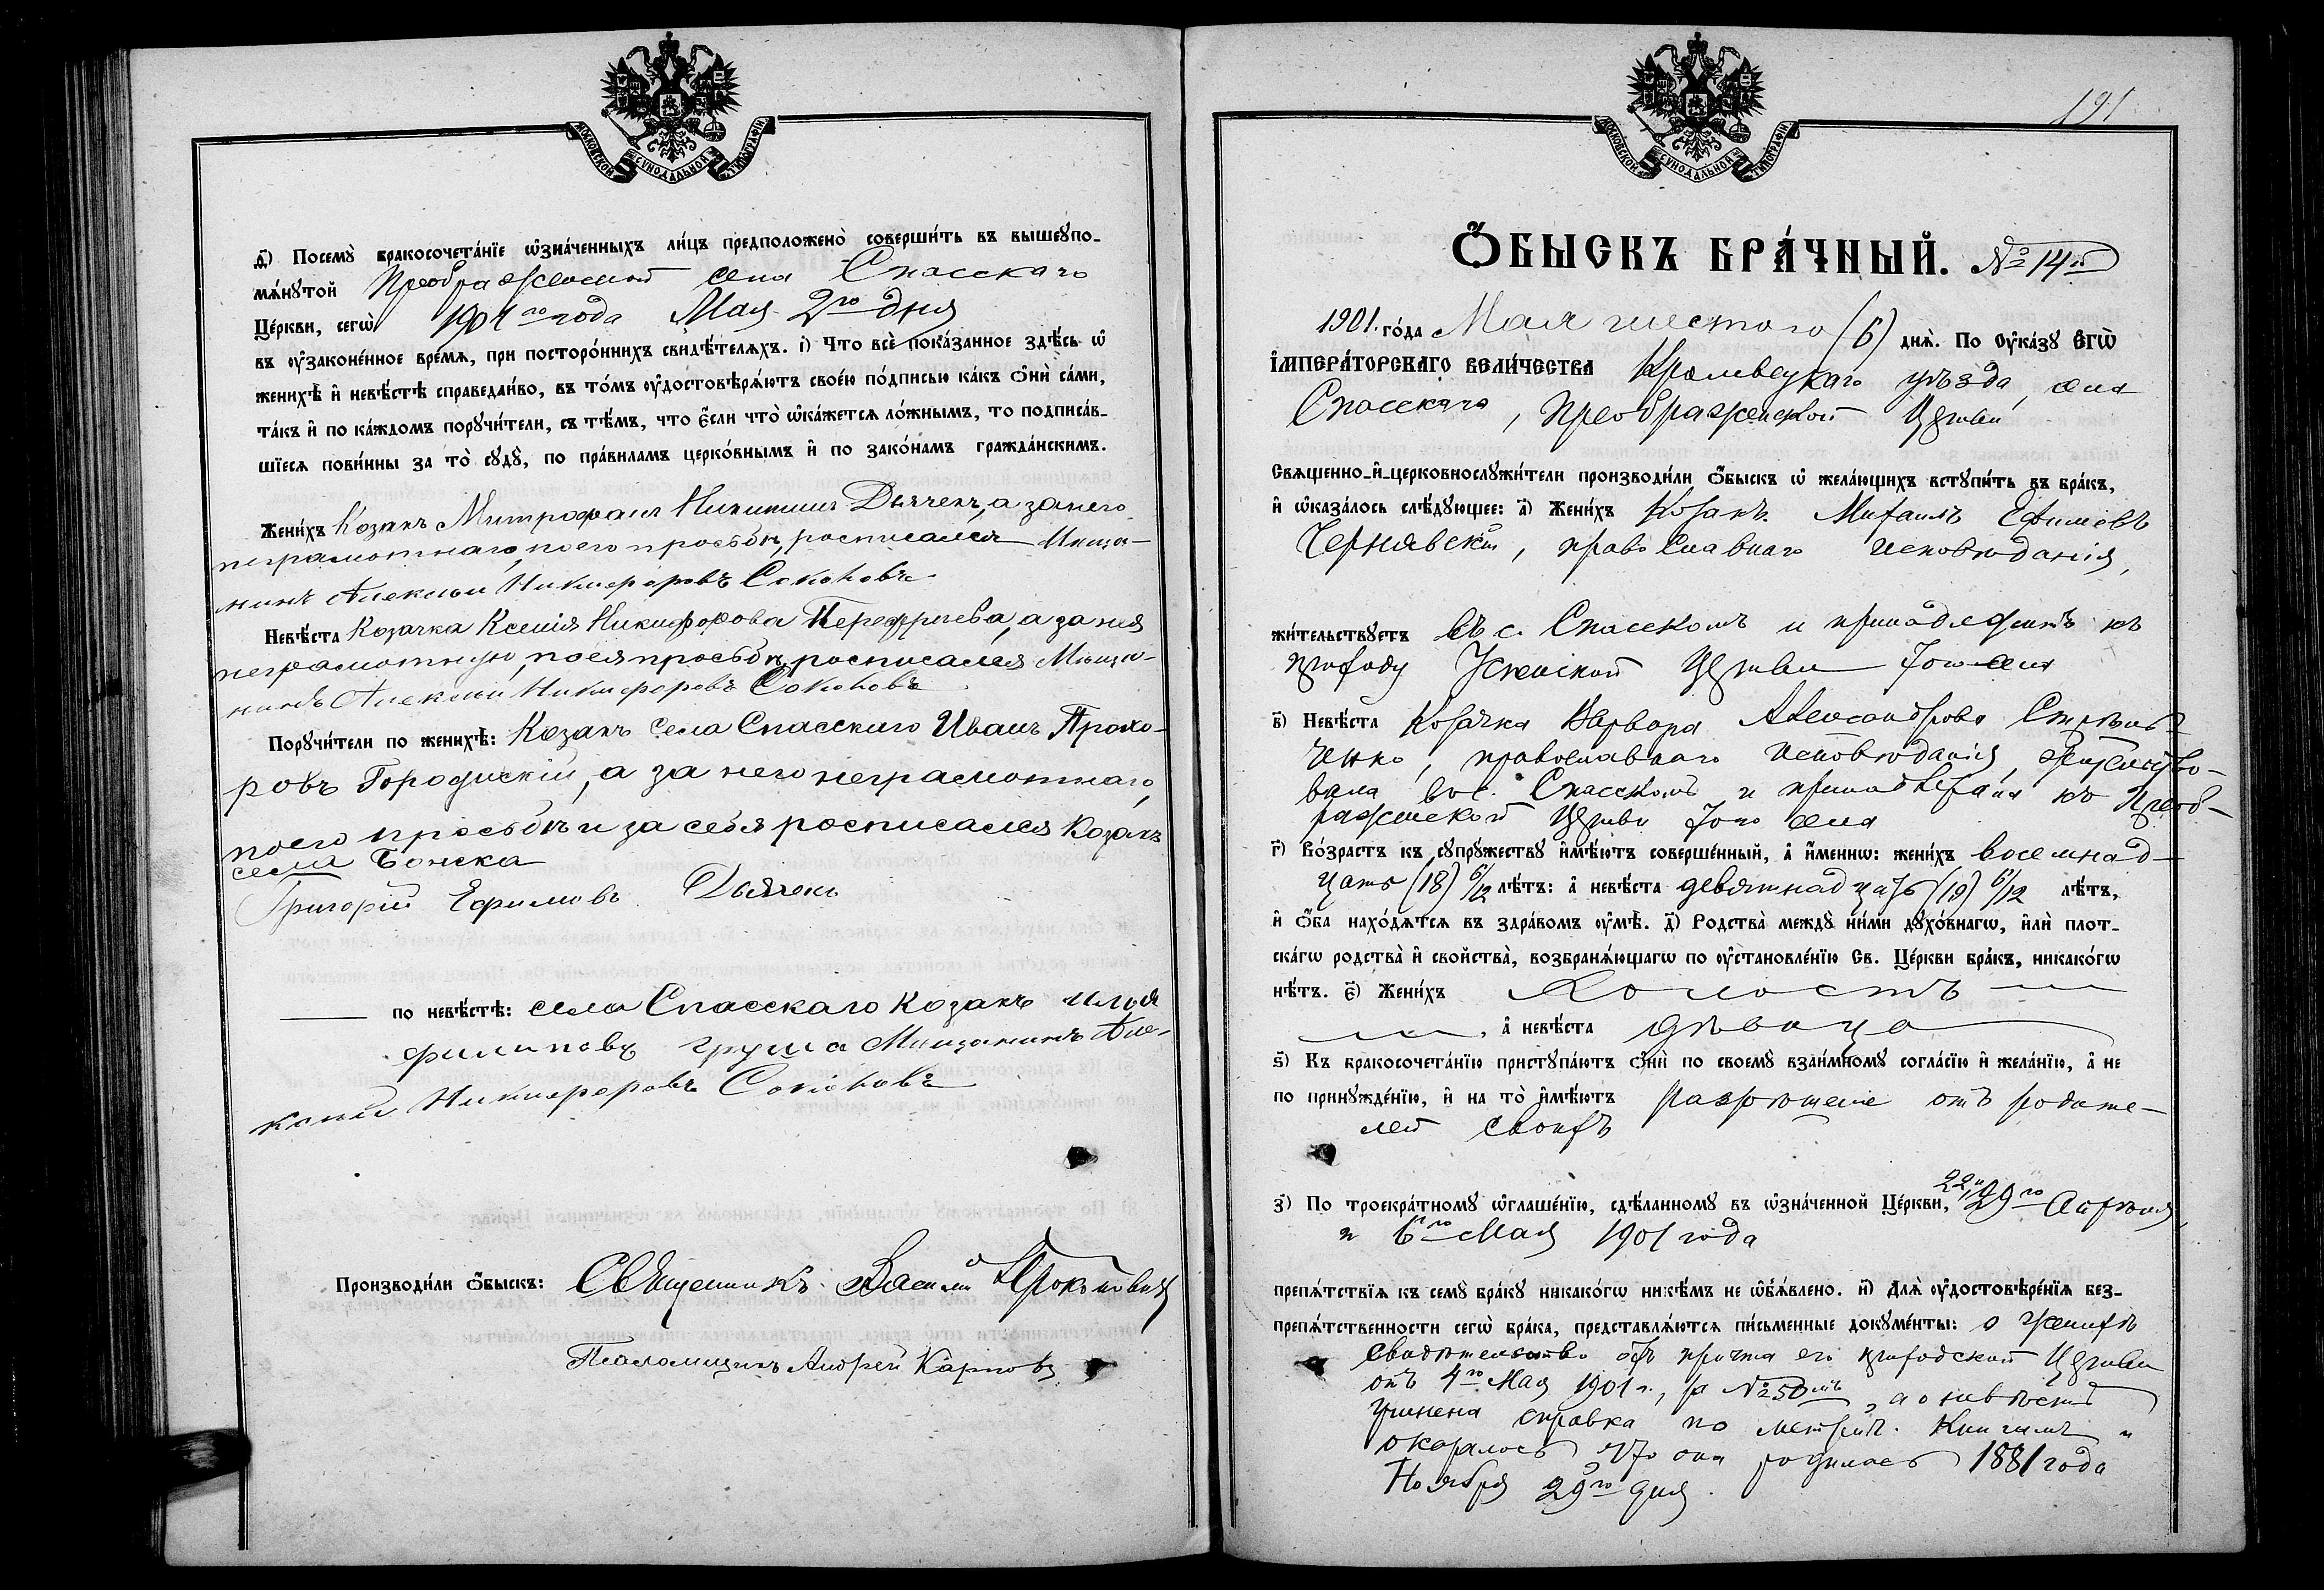 МОСКОВСКОЙ СУНОДАЛЬНОЙ ТИПОГРАФІИ
д҃і) Посемꙋ̀ бракосочета́нїе ѡ҆зна́ченныхъ ли́цъ предположено̀ соверши́ть въ вышеꙋпо-
мѧ́нꙋтой Преображенской села Спасскаго
Це́ркви, сегѡ̀ 1901го года Мая 2го дня
въ оу҆законе́нное вре́мѧ, при посторо́ннихъ свидѣ́телѧхъ. і) Что всѐ пока́занное здѣ́сь ѡ҆
женихѣ̀ и҆ невѣ́стѣ справедли́во, въ то́мъ оу҆достовѣрѧ́ютъ свое́ю по́дписью ка́къ ѻ҆нѝ са́ми,
та́къ и҆ по ка́ждомъ порꙋчи́тели, съ тѣ́мъ, что є҆́сли что̀ ѡ҆ка́жетсѧ ло́жнымъ, то подписа́в-
шїесѧ пови́нны за то̀ сꙋдꙋ̀, по пра́виламъ церко́внымъ и҆ по зако́намъ гражда́нскимъ.
Жени́хъ Козакъ Митрофанъ Никитинъ Дьяченъ, а за него
неграмотнаго, по его просьбѣ, росписался Мѣща-
нинъ Алексѣй Никифоровъ Соконовъ
Невѣ́ста Козачка Ксенія Никифорова, а за нея
неграмотную, по ея просьбѣ, росписался Мѣща-
нинъ Алексѣй Никифоровъ Соконовъ
Порꙋчи́тели по женихѣ̀: Козакъ села Спасскаго Иванъ Прохо-
ровъ Городискій, а за него неграмотнаго,
по его просьбѣ и за себя росписался Козакъ
села
Григорій Ефимовъ Дьяченъ
по невѣ́стѣ: села Спасскаго козакъ Илья
Филиповъ Груша Мѣщанинъ Але-
ксѣй Никифоровъ Соконовъ
Производи́ли ѻ҆́быскъ: Священникъ Василій
Псаломщикъ Андрей Карповъ
191
МОСКОВСКОЙ СУНОДАЛЬНОЙ ТИПОГРАФІИ
Ѻ҆́БЫСКЪ БРА́ЧНЫЙ. №14й
1901. го́да Мая шестого (6) днѧ̀. По оу҆ка́зꙋ Є҆гѡ̀
І҆мпера́торскагѡ вели́чества Кролевецкаго уѣзда, села
Спасскаго, Преображенской Церкви
Свѧще́нно-и҆-церковнослꙋжи́тели производи́ли ѻ҆́быскъ ѡ҆ жела́ющихъ встꙋпи́ть въ бра́къ,
и҆ ѡ҆каза́лось слѣ́дꙋющее: а҃) Жени́хъ Козакъ Михаилъ Ефимовъ
Чернявскій, православнаго исповѣданія,
жи́тельствꙋетъ въ с. Спасскомъ и принадлежитъ къ
приходу Успенской Церкви того села
в҃) Невѣ́ста Козачка Варвара Александрова Стрѣль-
ченко, православнаго исповѣданія, жительство-
вала въ с. Спасскомъ и принадлежала къ Преоб-
раженской Церкви того села
г҃) Во́зрастъ къ сꙋпрꙋ́жествꙋ и҆мѣ́ютъ соверше́нный, а҆ и҆́меннѡ: жени́хъ восемнад-
цать (18) 6/12 лѣ́тъ: а҆ невѣ́ста девятнадцать (19) 6/12 лѣ́тъ,
и҆ ѻ҆́ба нахо́дѧтсѧ въ здра́вомъ оу҆мѣ̀. д҃) Родства̀ междꙋ̀ ни́ми дꙋхо́внагѡ, и҆лѝ плот-
ска́гѡ родства̀ и҆ сво́йства, возбранѧ́ющагѡ по оу҆становле́нїю Св. Це́ркви бра́къ, никако́гѡ
нѣ́тъ. є҃) Жени́хъ Холостъ
, а҆ невѣ́ста дѣвица
ѕ҃) Къ бракосочета́нїю пристꙋпа́ютъ ѻ҆нѝ по своемꙋ̀ взаи́мномꙋ согла́сїю и҆ жела́нїю, а҆ не
по принꙋжде́нїю, и҆ на то̀ и҆мѣ́ютъ разрѣшеніе отъ родите-
лей своихъ
з҃) По троекра́тномꙋ ѡ҆глаше́нїю, сдѣ́ланномꙋ въ ѡ҆зна́ченной Це́ркви, 22, 29го Апрѣля
и 6го Мая 1901 года
препѧ́тствїѧ къ семꙋ̀ бра́кꙋ никако́гѡ никѣ́мъ не ѡ҆б̾ѧ́влено. и҃) Длѧ̀ оу҆достовѣре́нїѧ без-
препѧ́тственности сегѡ̀ бра́ка, представлѧ́ютсѧ пи́сьменные докꙋме́нты: о женихѣ
свидѣтельство отъ причта его приходской Церкви
отъ 4го Мая 1901 г., за №50мъ, а о невѣстѣ
учинена справка по метрич. книгамъ и
оказалось что она родилась 1881 года
Ноября 29го дня.